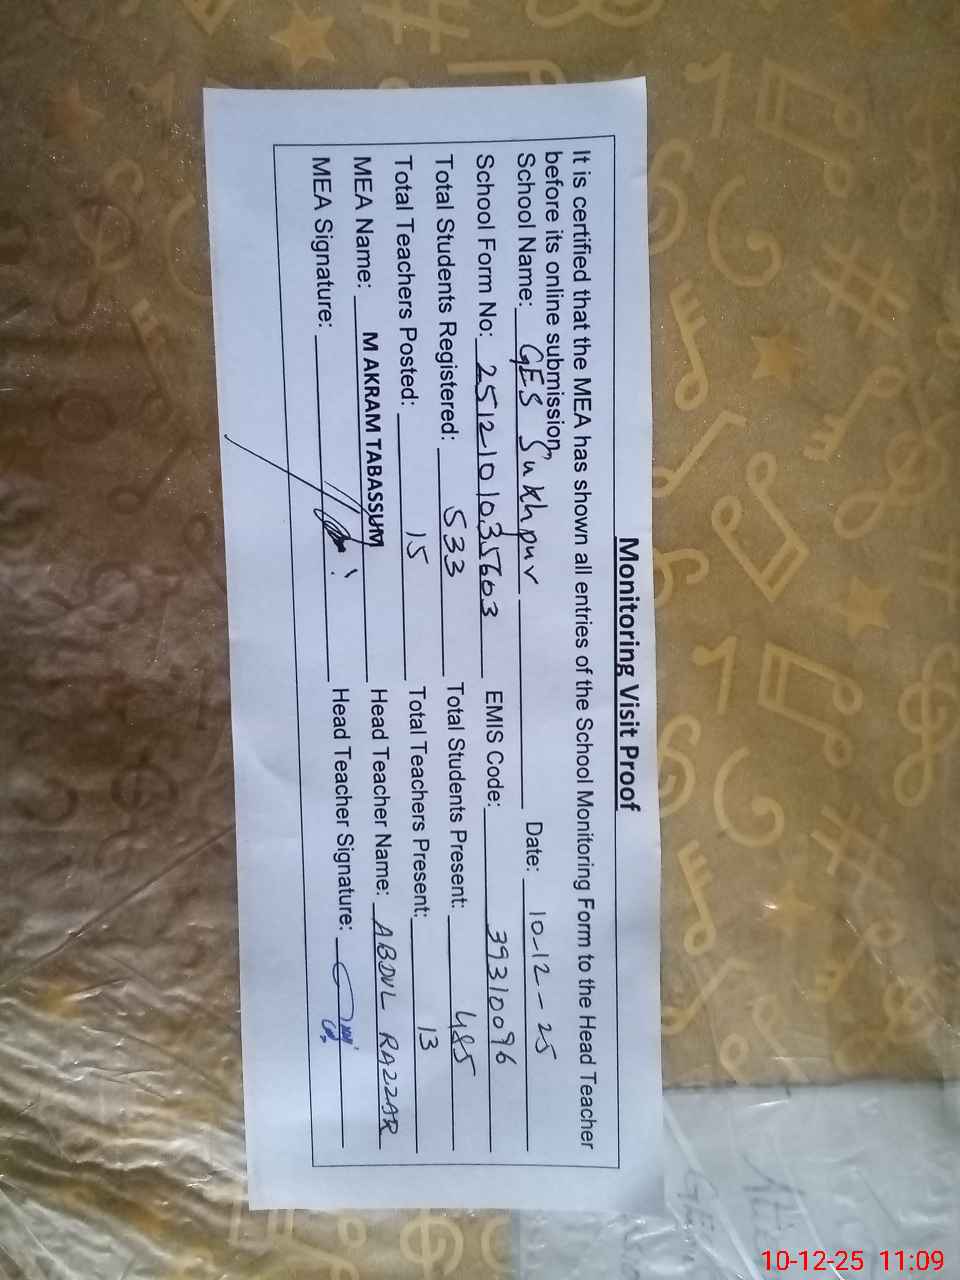 Monitoring Visit Proof
It is certified that the MEA has shown all entries of the School Monitoring Form to the Head Teacher
before its online submission,
School Name: GES Sukhpur Date: 10-12-25
School Form No: 2512101035603 EMIS Code: 39310096
Total Students Registered: 533 Total Students Present: 485
Total Teachers Posted: 15 Total Teachers Present: 13
MEA Name: M AKRAM TABASSUM Head Teacher Name: ABDUL RAZZAR
MEA Signature: Head Teacher Signature:
10-12-25 11:09